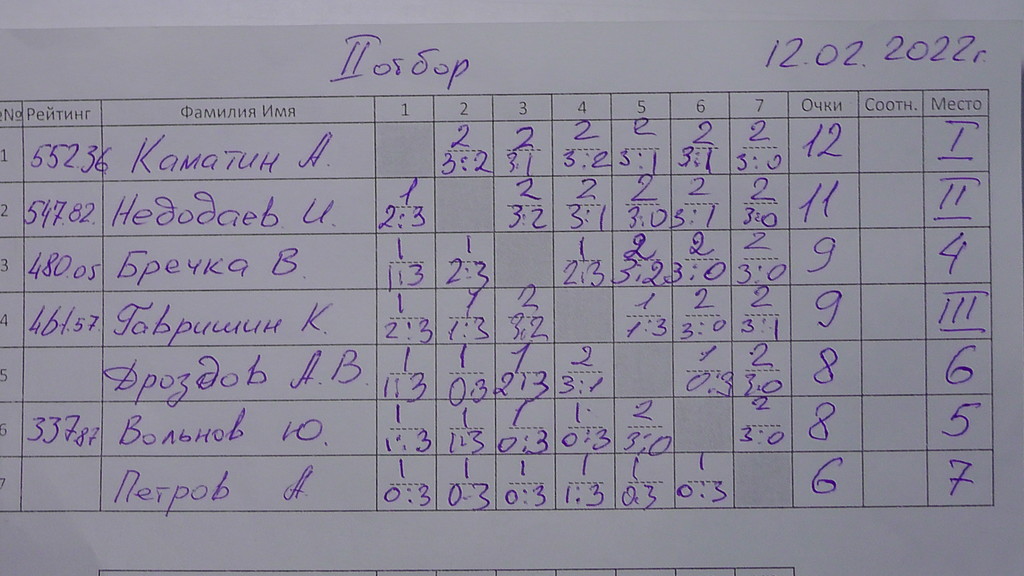 II отбор 12.02.2022г.
№ Рейтинг Фамилия Имя 1 2 3 4 5 6 7 Очки Соотн. Место
1 55236 Каматин А. 2 3:2 2 3:1 2 3:2 2 3:1 2 3:1 2 3:0 12 I
2 547.82 Недодаев И. 1 2:3 2 3:2 2 3:1 2 3:0 2 3:1 2 3:0 11 II
3 480.05 Бречка В. 1 1:3 1 2:3 1 2:3 2 3:2 2 3:0 2 3:0 9 4
4 461.57 Гавришин К. 1 2:3 1 1:3 2 3:2 1 1:3 2 3:0 2 3:1 9 III
5 Дроздов А.В. 1 1:3 1 0:3 1 2:3 2 3:1 1 0:3 2 3:0 8 6
6 33787 Вольнов Ю. 1 1:3 1 1:3 1 0:3 1 0:3 2 3:0 2 3:0 8 5
7 Петров А 1 0:3 1 0:3 1 0:3 1 1:3 1 0:3 1 0:3 6 7